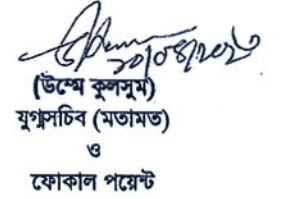 (উম্মে কুলসুম)
যুগ্মসচিব (মতামত)
ও
ফোকাল পয়েন্ট